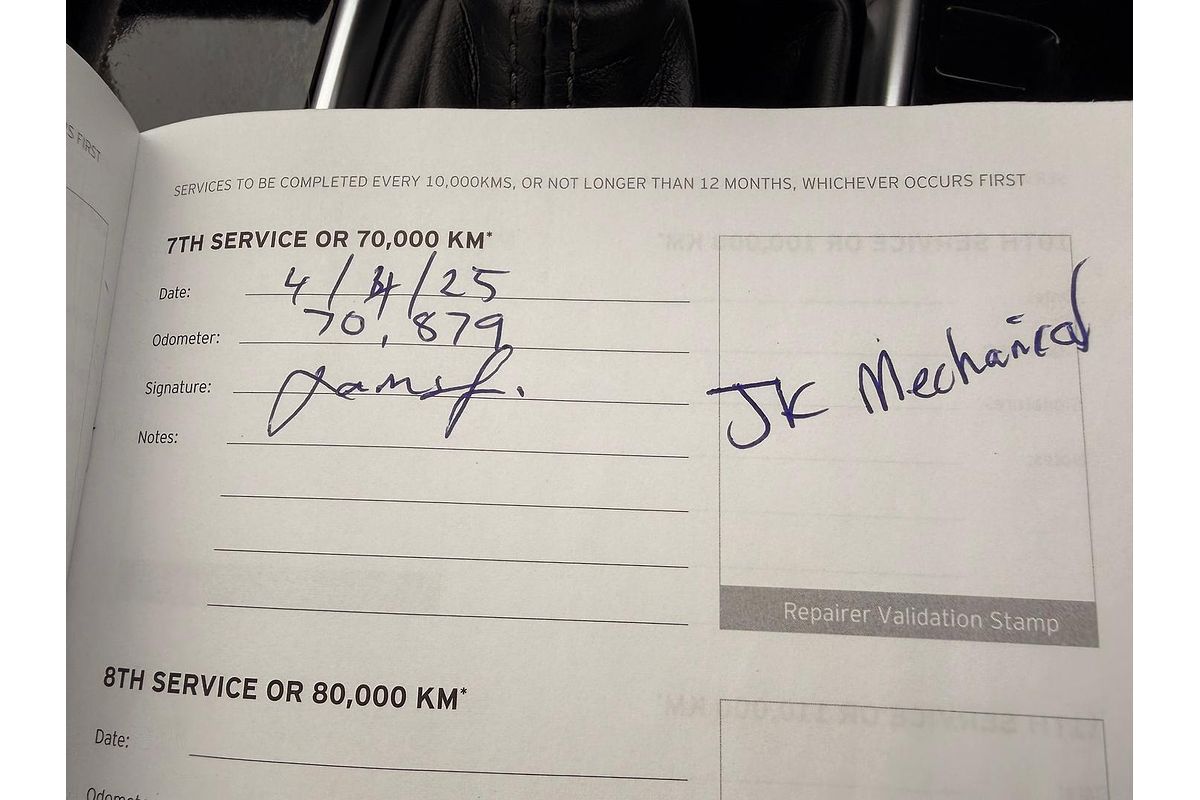 S FIRST
SERVICES TO BE COMPLETED EVERY 10,000KMS, OR NOT LONGER THAN 12 MONTHS, WHICHEVER OCCURS FIRST
7TH SERVICE OR 70,000 KM*
Date: 4/4/25
Odometer: 70,879
Signature:
Notes:
JK Mechanical
Repairer Validation Stamp
8TH SERVICE OR 80,000 KM*
Date: